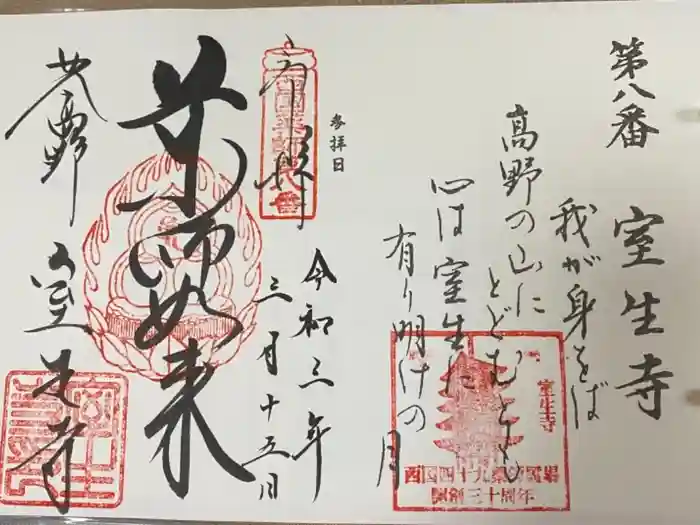 第八番 室生寺
我が身をば
高野の山に
とどむとも
心は室生に
有り明けの月
室生寺
西国四十九薬師霊場
開創三十周年
参拝日
奉拝
令和三年
三月十五日
薬師如来
女人高野
室生寺